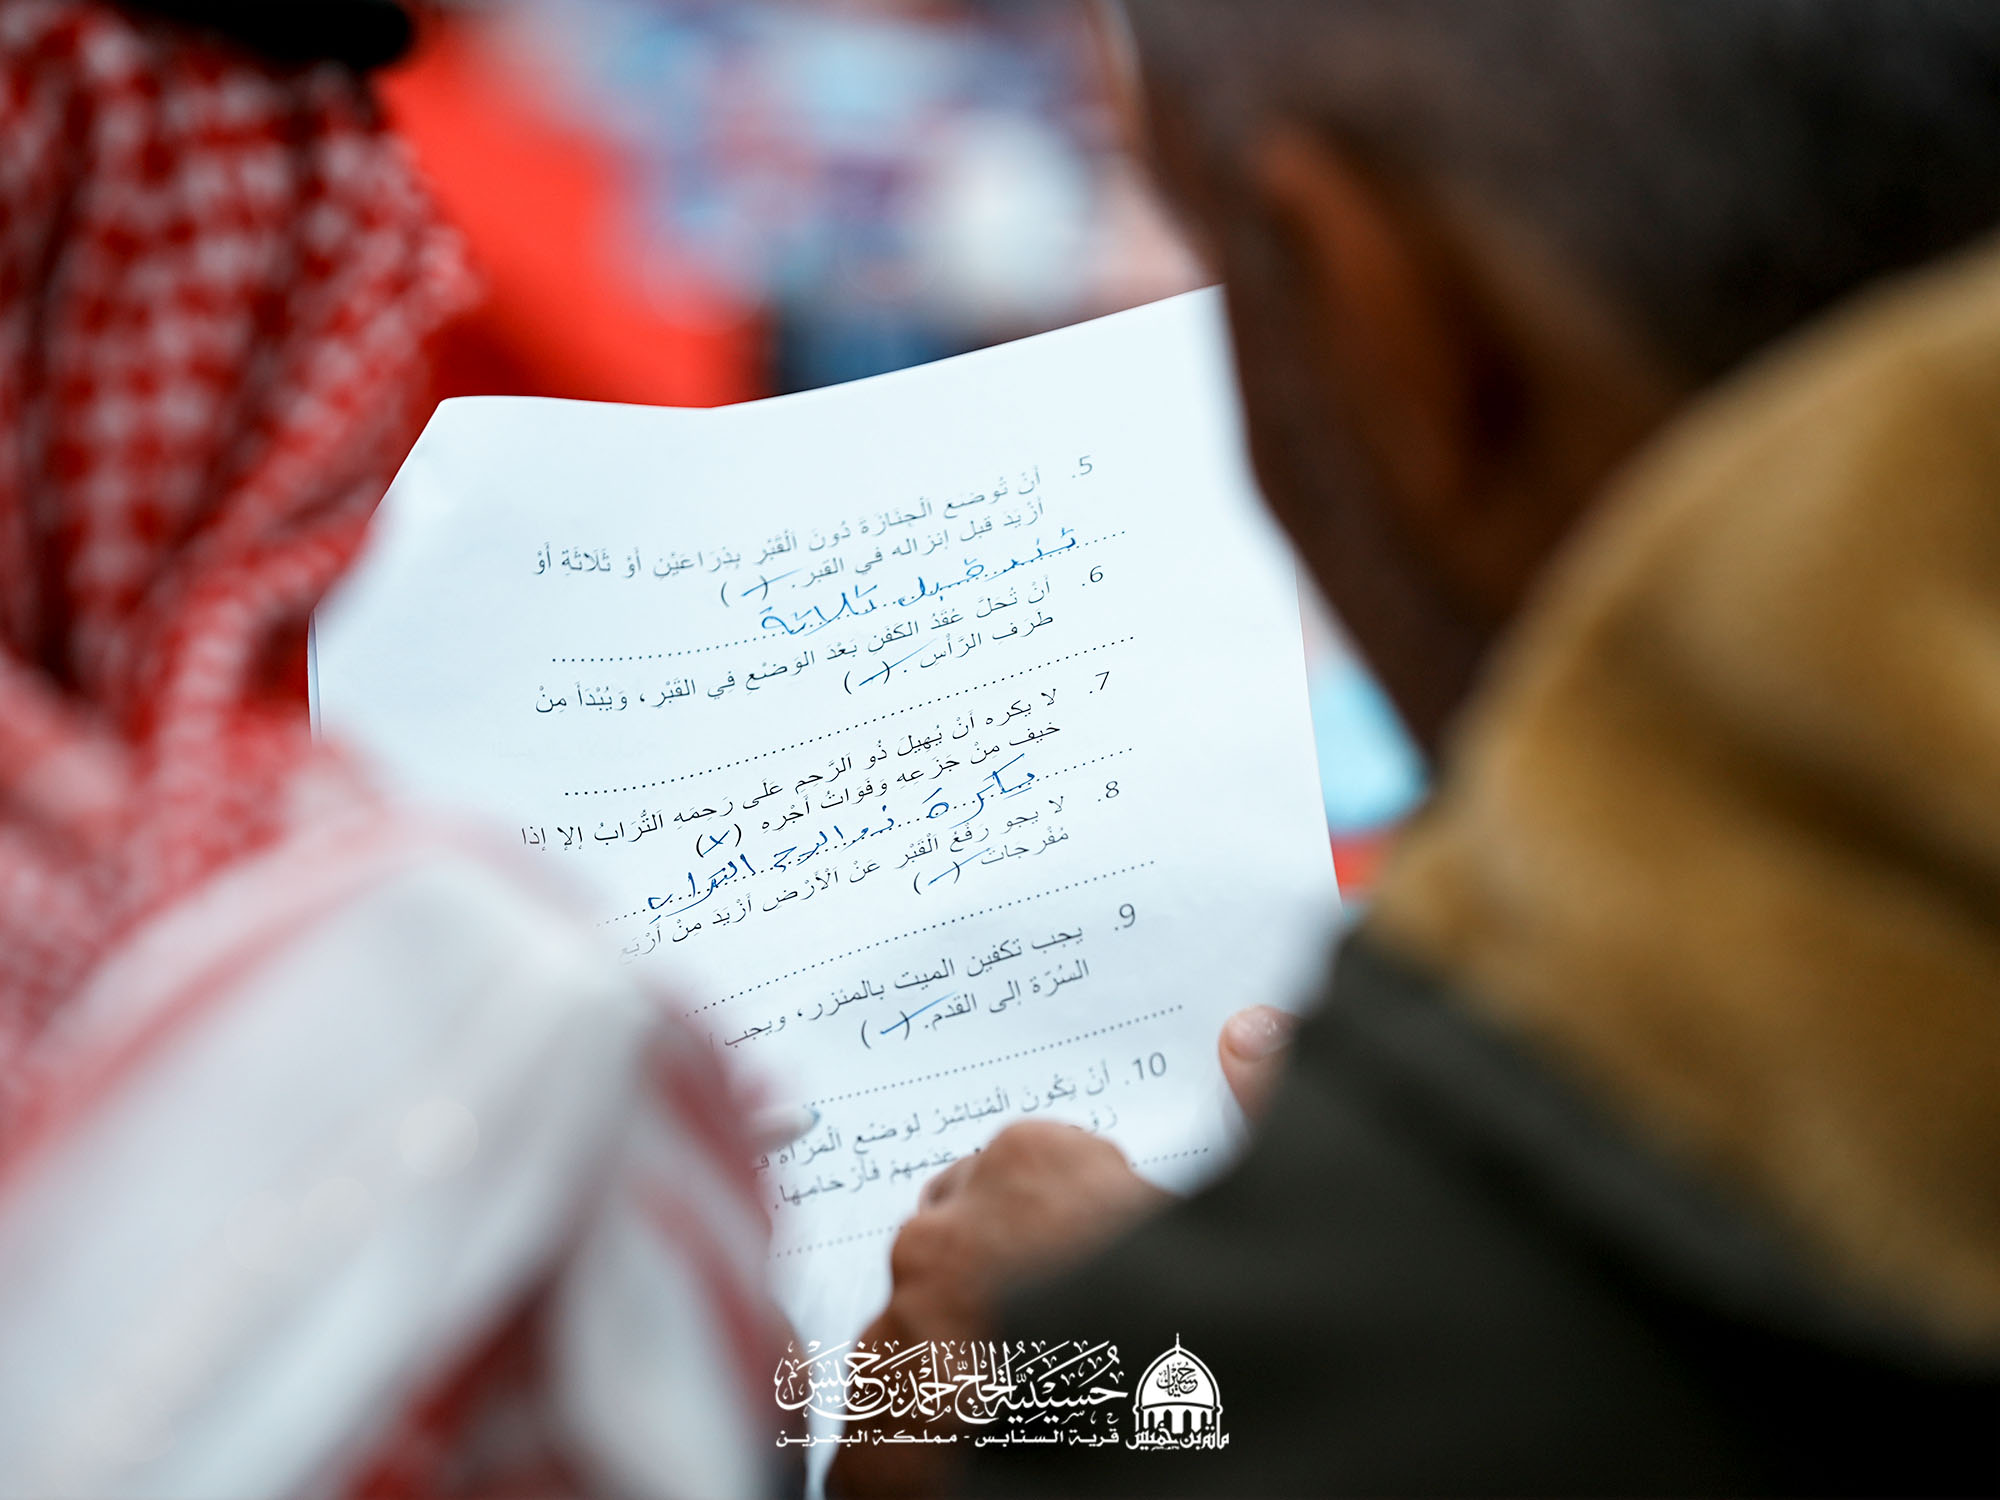 5. أَنْ تُوضَع اَلْجِنَازَةَ دُونَ اَلْقَبْرِ بِذِرَاعَيْنِ أَوْ ثَلَاثَةِ أَوْ
أَزْيَدَ قبل إنزاله في القبر. ( )
قبل ثلاثة
6. أَنْ تُحَلَّ عُقَدُ الكَفَنِ بَعْدَ الوَضْعِ فِي القَبْرِ ، وَيُبْدَأَ مِنْ
طَرَفِ الرَّأْسِ . ( )
7. لا يكره أَنْ يُهِيلَ ذُو اَلرَّحِمِ عَلَى رَحِمَهِ اَلتُّرَابُ إلا إذا
خيف مِنْ جَزَعِهِ وَفَوَاتُ أَجْرِهِ (x)
التراب
8. لا يجو رَفْعُ اَلْقَبْرِ عَنْ اَلْأَرْضِ أَزْيَدَ مِنْ أَرْبَعِ
مُفْرِجَاتٍ ( )
9. يجب تكفين الميت بالمئزر، ويجب
السُرّة إلى القدم. ( )
10. أَنْ يَكُونَ اَلْمُبَاشِرُ لِوَضْعِ اَلْمَرْأَةَ
عَدَمِهِمْ فَأَرْحَامِهَا.
حُسَيْنِيَّة الحَاج أَحْمَد بْن خَمِيس
قرية السنابس - مملكة البحرين
حسين
مأتم بن خميس